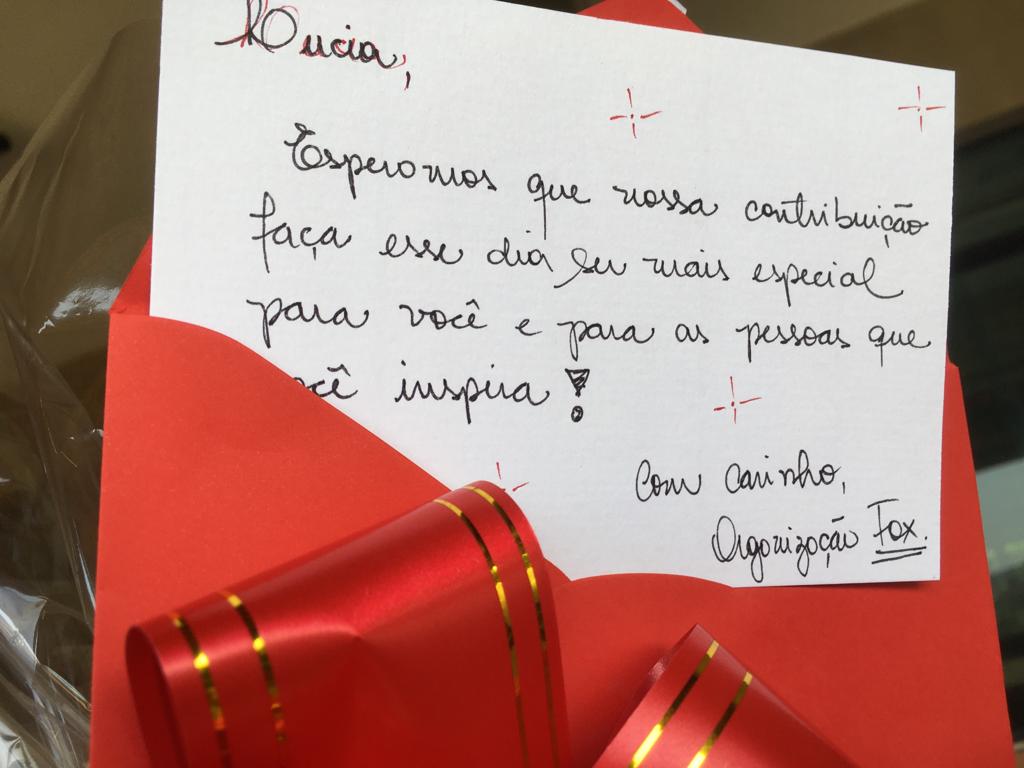 Lucia,
Esperamos que nossa contribuição
faça esse dia ser mais especial
para você e para as pessoas que
ocê inspira!
Com carinho,
Organização Fox.